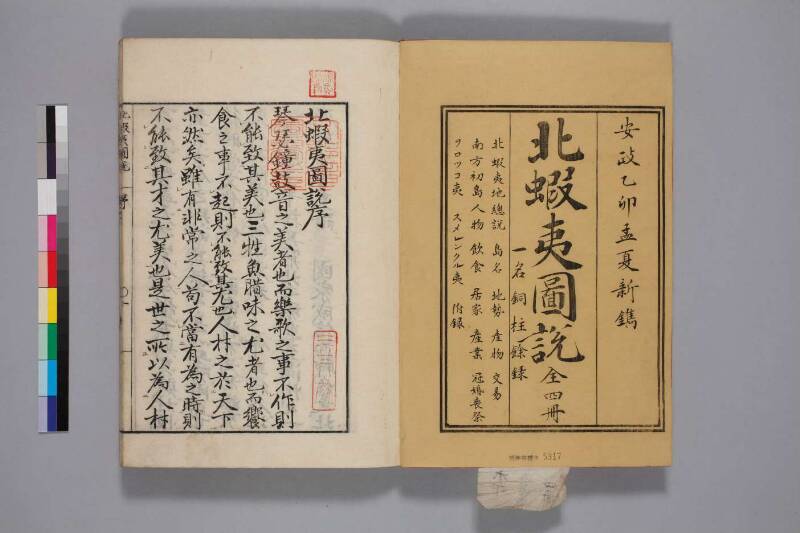 安政乙卯孟夏新鐫
北蝦夷圖説 全四冊
一名銅柱餘録
北蝦夷地總説 島名 地勢 産物 交易
南方初島人物 飲食 居家 産業 冠婚喪祭
ヲロツコ夷 スメレンクル夷 附録
5317
北蝦夷圖説序
琴瑟鐘鼓音之美者也而樂歌之事不作則
不能致其美也三牲魚腊味之尤者也而饗
食之事不起則不能致其尤也人材之於天下
亦然矣雖有非常之人苟不當有為之時則
不能致其才之尤美也是世之所以為人材
北蝦夷圖説 序